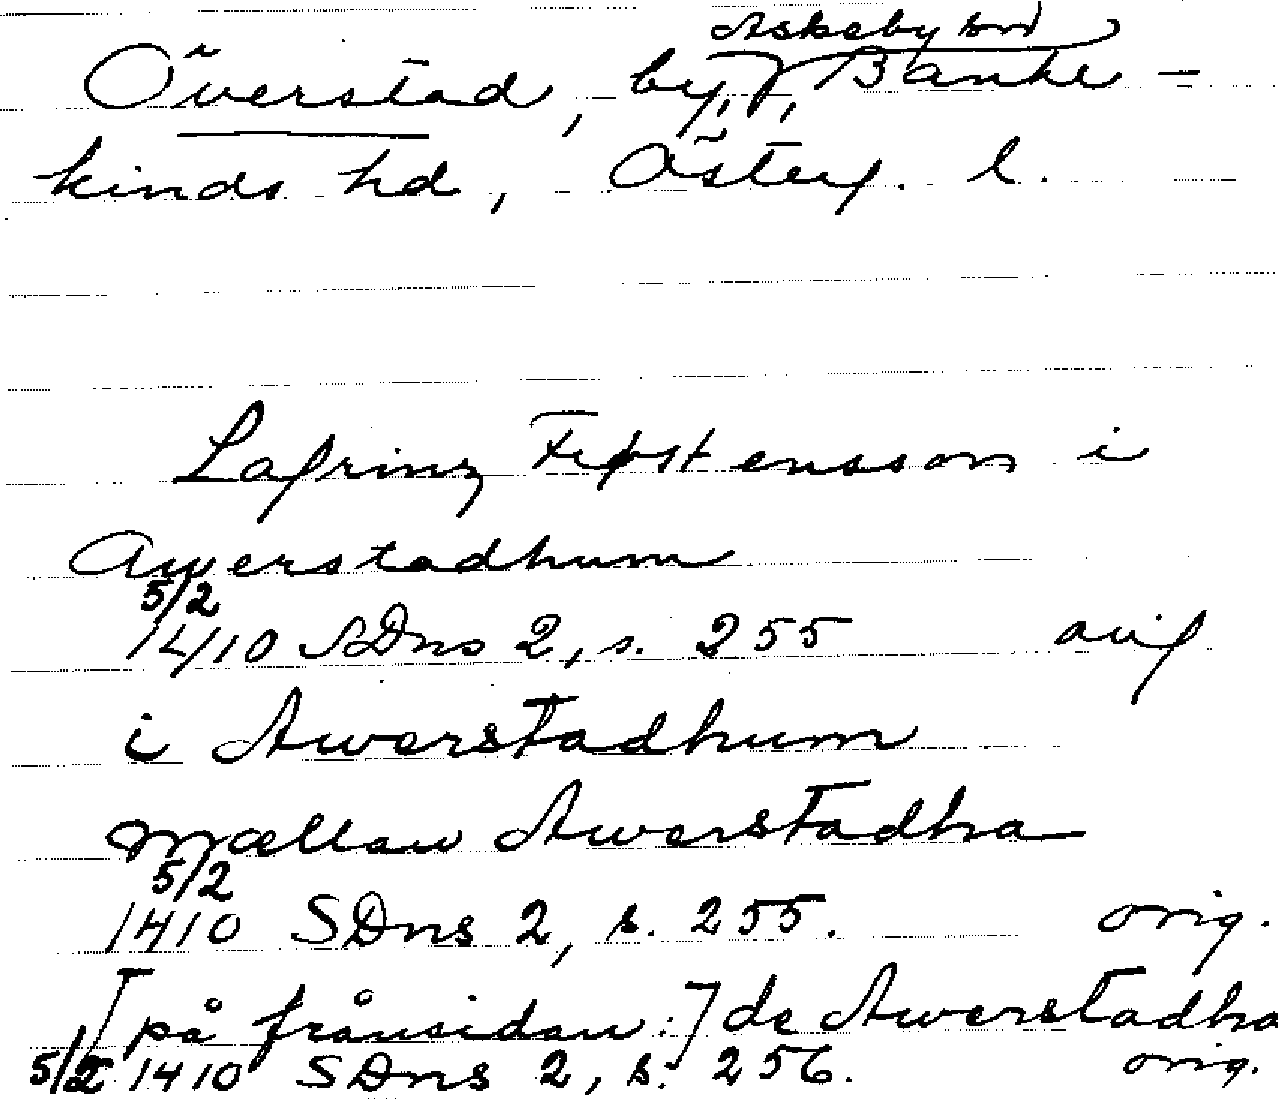 Askeby sn
Överstad, by, Banke-
kinds hd, Österg. l.
Lafrinz Testensson i
Awerstadhum
5/2
1410 SDns 2, s. 255 orig
i Awerstadhum
mællan Awerstadha
5/2
1410 SDns 2, s. 255. orig.
[på frånsidan:] de Awerstadha
5/2 1410 SDns 2, s. 256. orig.